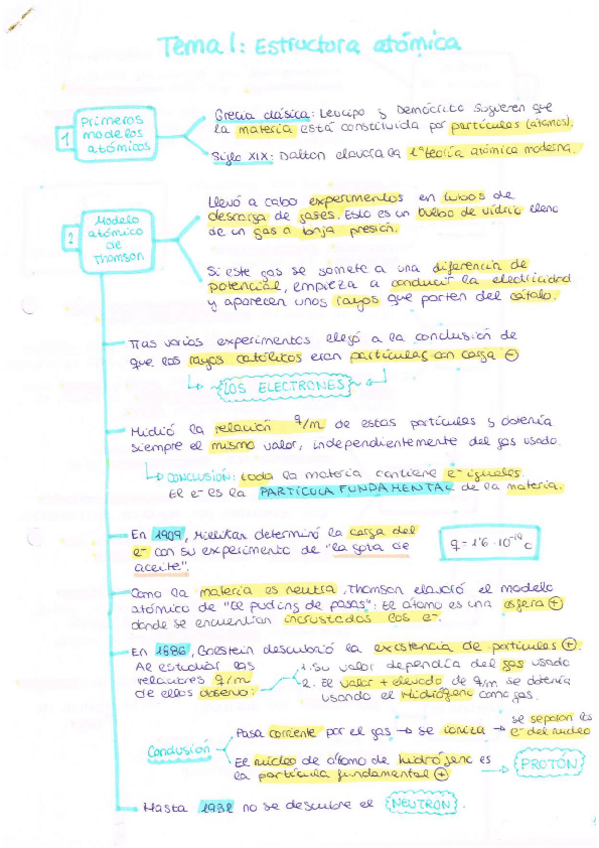 Tema 1: Estructura atómica
1
Primeros
modelos
atómicos
Grecia clásica: Leucipo y Demócrito sugieren que
la materia está constituida por partículas (átomos).
Siglo XIX: Dalton elavora la 1ª teoría atómica moderna.
2
Modelo
atómico
de
Thomson
Llevó a cabo experimentos en tubos de
descarga de gases. Esto es un bulbo de vidrio lleno
de un gas a baja presión.
Si este gas se somete a una diferencia de
potencial, empieza a conducir la electricidad
y aparecen unos rayos que parten del cátodo.
Tras varios experimentos llegó a la conclusión de
que los rayos catódicos eran partículas con carga ⊖
LOS ELECTRONES
Midió la relación q/m de estas partículas y obtenía
siempre el mismo valor, independientemente del gas usado.
CONCLUSIÓN: toda la materia contiene e⁻ iguales.
El e⁻ es la PARTÍCULA FUNDAMENTAL de la materia.
En 1909, Millikan determinó la carga del
e⁻ con su experimento de "la gota de
aceite".
q = 1'6 · 10⁻¹⁹ C
Como la materia es neutra, Thomson elavoró el modelo
atómico de "El puding de pasas": El átomo es una esfera ⊕
donde se encuentran incrustados los e⁻.
En 1886, Goldstein descubrió la existencia de partículas ⊕.
Al estudiar las
relaciones q/m
de ellos observó:
1. Su valor dependía del gas usado
2. El valor + elevado de q/m se obtenía
usando el Hidrógeno como gas.
Conclusión
Pasa corriente por el gas → se ioniza →
se separan los
e⁻ del núcleo
El núcleo de átomo de hidrógeno es
la partícula fundamental ⊕
PROTÓN
Hasta 1932 no se descubre el NEUTRÓN.